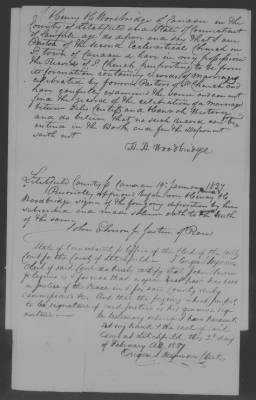 I Henry H Woodbridge of Canaan in the
County of Litchfield and State of Connecticut
of lawful age do depose and say that I am
Pastor of the second Ecclesiastical Church in
town of Canaan & have in my possession
the Records of S Church purporting to be from
its formation containing records of marriages
celebrated by former Pastors of S Church and
have carefully examined the same and can not
find the record of the celebration of a marriage
between
and do believe that no such record
in the Book and further deponent
saith not
H. H. Woodbridge
Litchfield County ss Canaan 19th January 1837
Personally appeared before me Henry H
Woodbridge signer of the foregoing deposition by him
subscribed and made solemn oath to the truth
of the same
John Justice of Peace
State of Connecticut ss Office of the Clerk of the County
Court for the County of Litchfield I
Clerk of said Court do hereby certify that John
a justice of the Peace in & for said County duly
commissioned &c And that the foregoing which purports
to be signature of said justice is his genuine sig-
nature In testimony whereof I have hereunto
set my hand & the seal of said
Court at Litchfield this 3d day
of February AD. 1837
Origen S Seymour Clerk